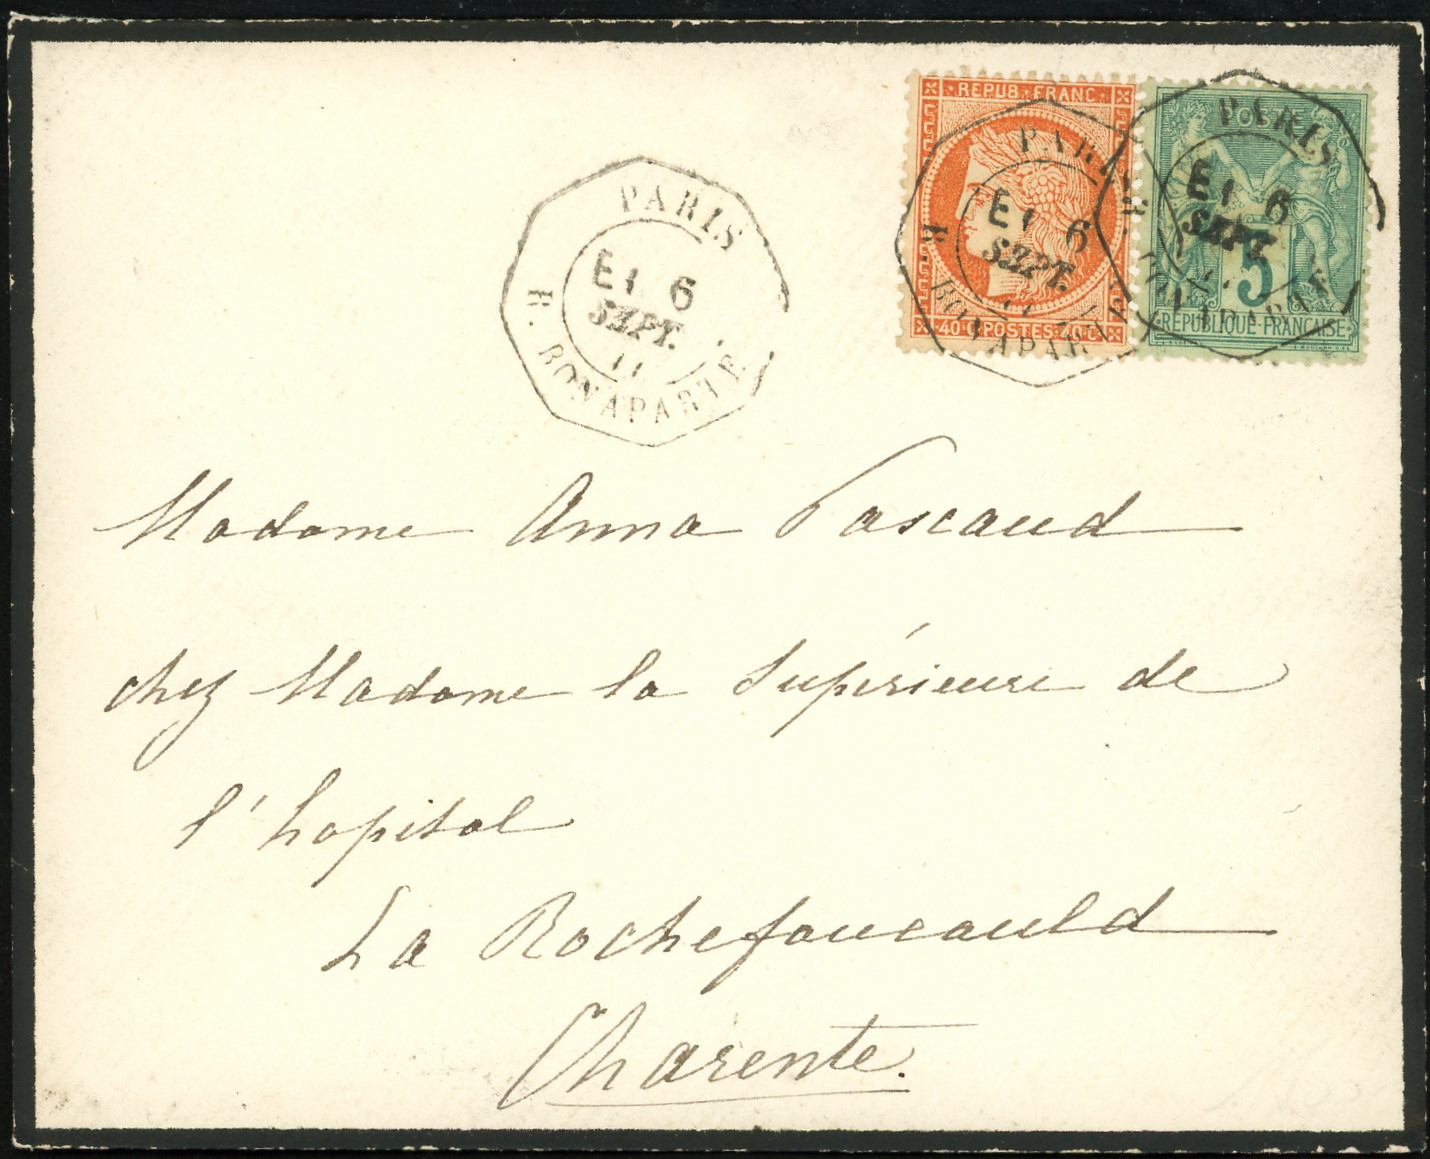 REPUB. FRANC.
40 C. POSTES 40 C.
POSTE
5
RÉPUBLIQUE FRANÇAISE
PARIS
E1 6
SEPT.
77
R. BONAPARTE
PARIS
E1 6
SEPT.
77
R. BONAPARTE
PARIS
E1 6
SEPT.
BONAPARTE
Madame Anna Pascaud
chez Madame la Supérieure de
l'hopital
La Rochefoucauld
Charente.